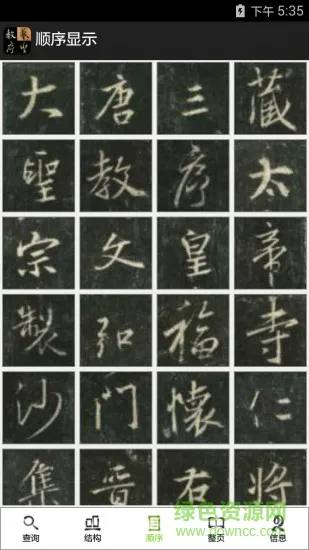 下午 5:35
聖教序 顺序显示
大唐三藏
聖教序太
宗文皇帝
製弘福寺
沙門懷仁
集晉右将
查询 结构 顺序 整页 信息
绿色资源网
www.downcc.com